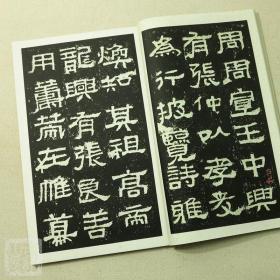 周周宣王中興
有張仲以孝友
為行披覽詩雅
煥知其祖高帝
龍興有張良善
用籌策在帷幕